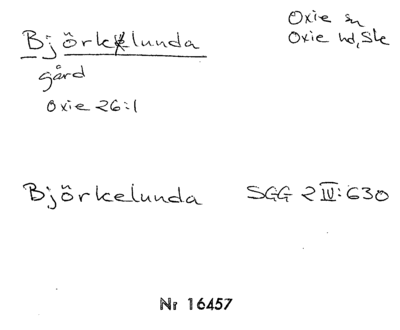 Björkelunda
Oxie sn
Oxie hd, Sk
gård
Oxie 26:1
Björkelunda SGG 2 IV: 630
Nr 16457